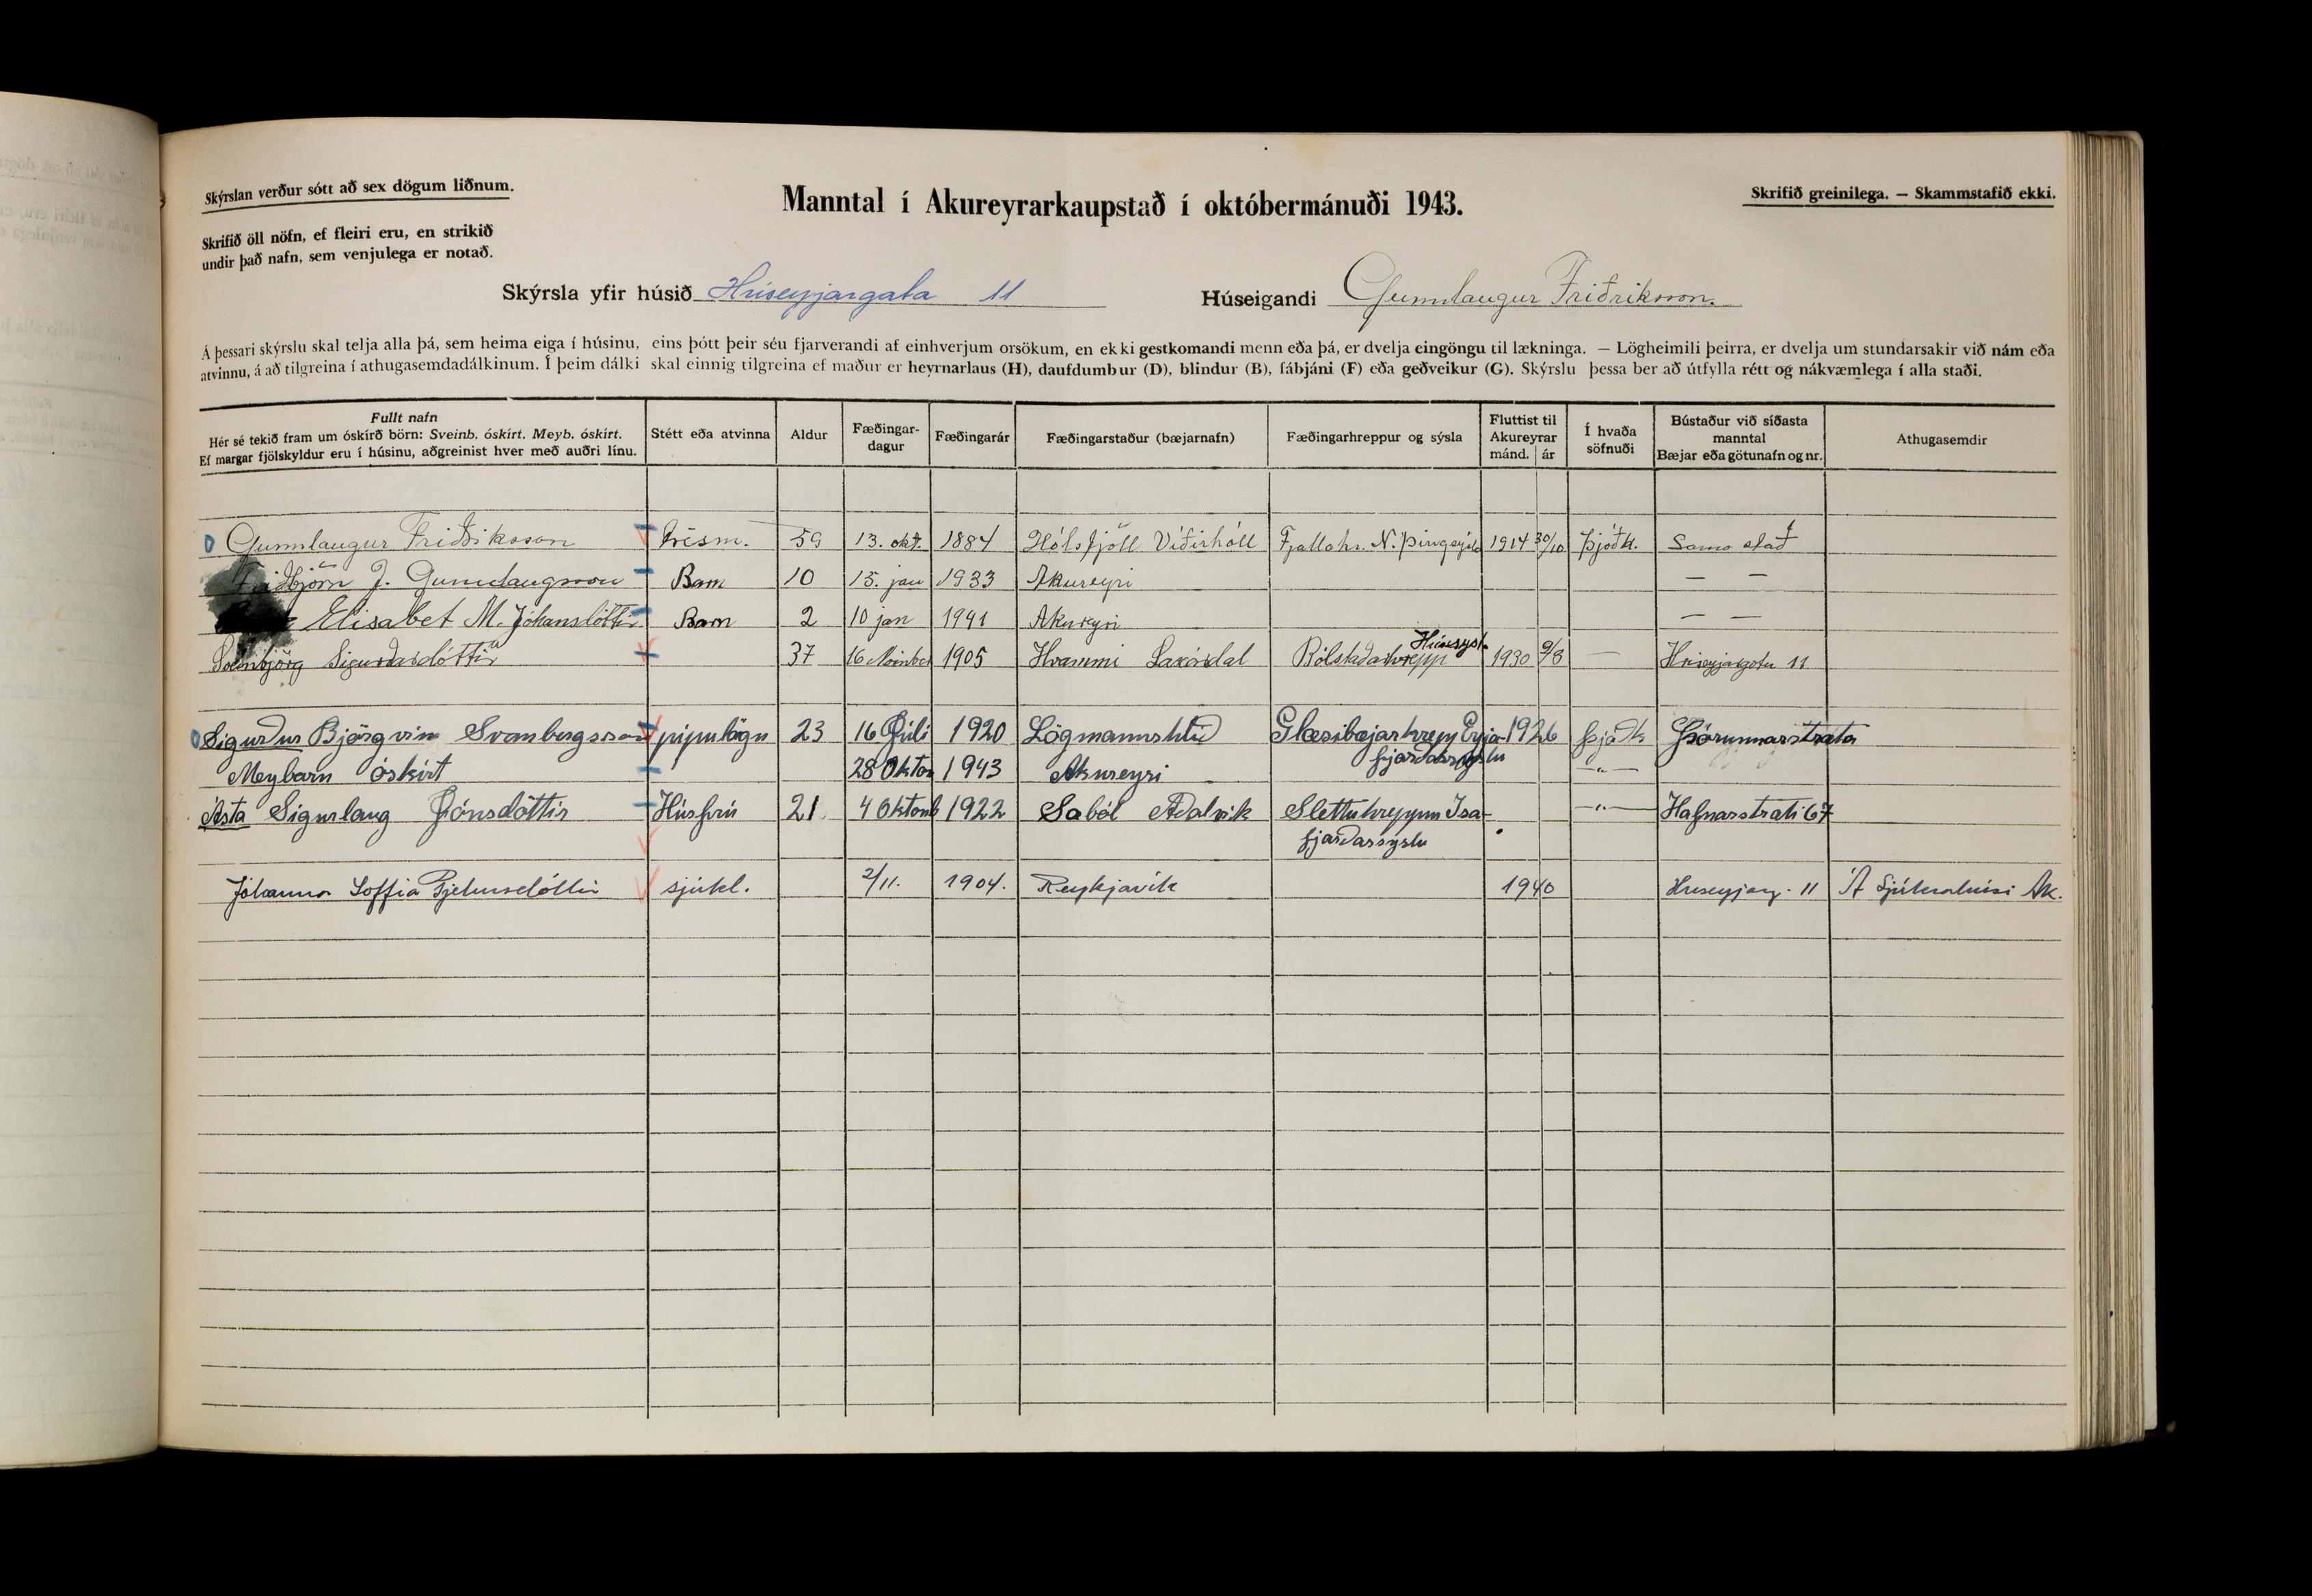 Skýrslan verður sótt að sex dögum liðnum.
Manntal í Akureyrarkaupstað í októbermánuði 1943.
Skrifið greinilega. — Skammstafið ekki.
Skrifið öll nöfn, ef fleiri eru, en strikið
undir það nafn, sem venjulega er notað.
Skýrsla yfir húsið Hríseyjargata 11 Húseigandi Gunnlaugur Friðriksson.
Á þessari skýrslu skal telja alla þá, sem heima eiga í húsinu, eins þótt þeir séu fjarverandi af einhverjum orsökum, en ekki gestkomandi menn eða þá, er dvelja eingöngu til lækninga. — Lögheimili þeirra, er dvelja um stundarsakir við nám eða
atvinnu, á að tilgreina í athugasemdadálkinum. Í þeim dálki skal einnig tilgreina ef maður er heyrnarlaus (H), daufdumbur (D), blindur (B), fábjáni (F) eða geðveikur (G). Skýrslu þessa ber að útfylla rétt og nákvæmlega í alla staði.
Fullt nafn
Hér sé tekið fram um óskírð börn: Sveinb. óskírt. Meyb. óskírt.
Ef margar fjölskyldur eru í húsinu, aðgreinist hver með auðri línu.
Stétt eða atvinna
Aldur
Fæðingar-
dagur
Fæðingarár
Fæðingarstaður (bæjarnafn)
Fæðingarhreppur og sýsla
Fluttist til
Akureyrar
mánd. ár
Í hvaða
söfnuði
Bústaður við síðasta
manntal
Bæjar eða götunafn og nr.
Athugasemdir
Gunnlaugur Friðriksson Trésm. 59 13. okt. 1884 Hólsfjöll Víðirhóll Fjallahr. N. Þingeyjs 1914 30/10 Þjóðk. Sama stað
Friðbjörn J. Gunnlaugsson Barn 10 15. jan 1933 Akureyri — —
Elisabet M. Jóhansdóttir Barn 2 10 jan 1941 Akureyri — —
Sigurðardóttir 37 16 1905 Hvammi Bólstaðarhrepp Húnsýsl. 1930 9/8 — Hríseyjargötu 11
Sigurður Björgvin Svanbergsson pípulögn 23 16 Júlí 1920 Lögmannshlíð Glæsibæjarhrepp Eyja- 1926 Þjóðk Þórunnarstræta
fjarðarsýslu
Meybarn óskírt 28 Október 1943 Akureyri —"—
Ásta Sigurlaug Jónsdóttir Húsfrú 21 4 Októb 1922 Saból Aðalvík Sléttuhreppnum Ísa- —"— Hafnarstræti 67
fjarðarsýslu
Jóhanna Soffía Pjetursdóttir sjúkl. 2/11. 1904. Reykjavík 1940 Hríseyjarg. 11 Á Sjúkrahúsi Ak.